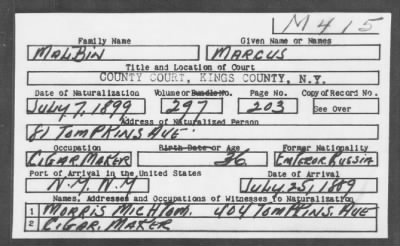 M415
Family Name Given Name or Names
MALBIN MARCUS
Title and Location of Court
COUNTY COURT, KINGS COUNTY, N.Y.
Date of Naturalization Volume or Bundle No. Page No. Copy of Record No.
JULY 7, 1899 297 203 See Over
Address of Naturalized Person
81 TOMPKINS AVE.
Occupation Birth Date or Age Former Nationality
CIGAR MAKER 36 EMPEROR RUSSIA
Port of Arrival in the United States Date of Arrival
N.Y. N.Y JULY 25, 1889
Names, Addresses and Occupations of Witnesses to Naturalization
1 MORRIS MICHTOM. 404 TOMPKINS. AVE
2 CIGAR. MAKER